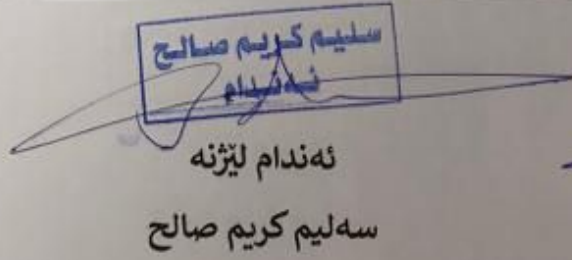 سلیم کریم صالح
ئەندام
ئەندام لێژنە
سەلیم کریم صالح